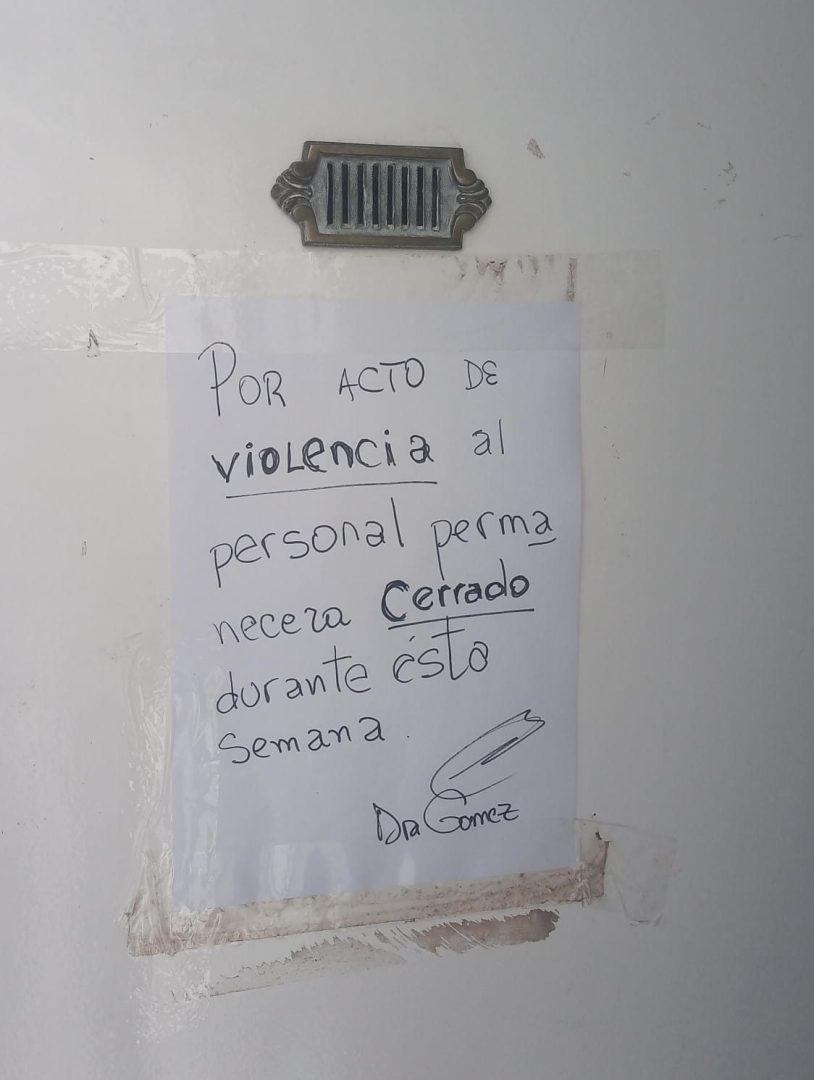 POR ACTO DE
violencia al
personal perma
necera Cerrado
durante ésta
semana.
Dra Gomez